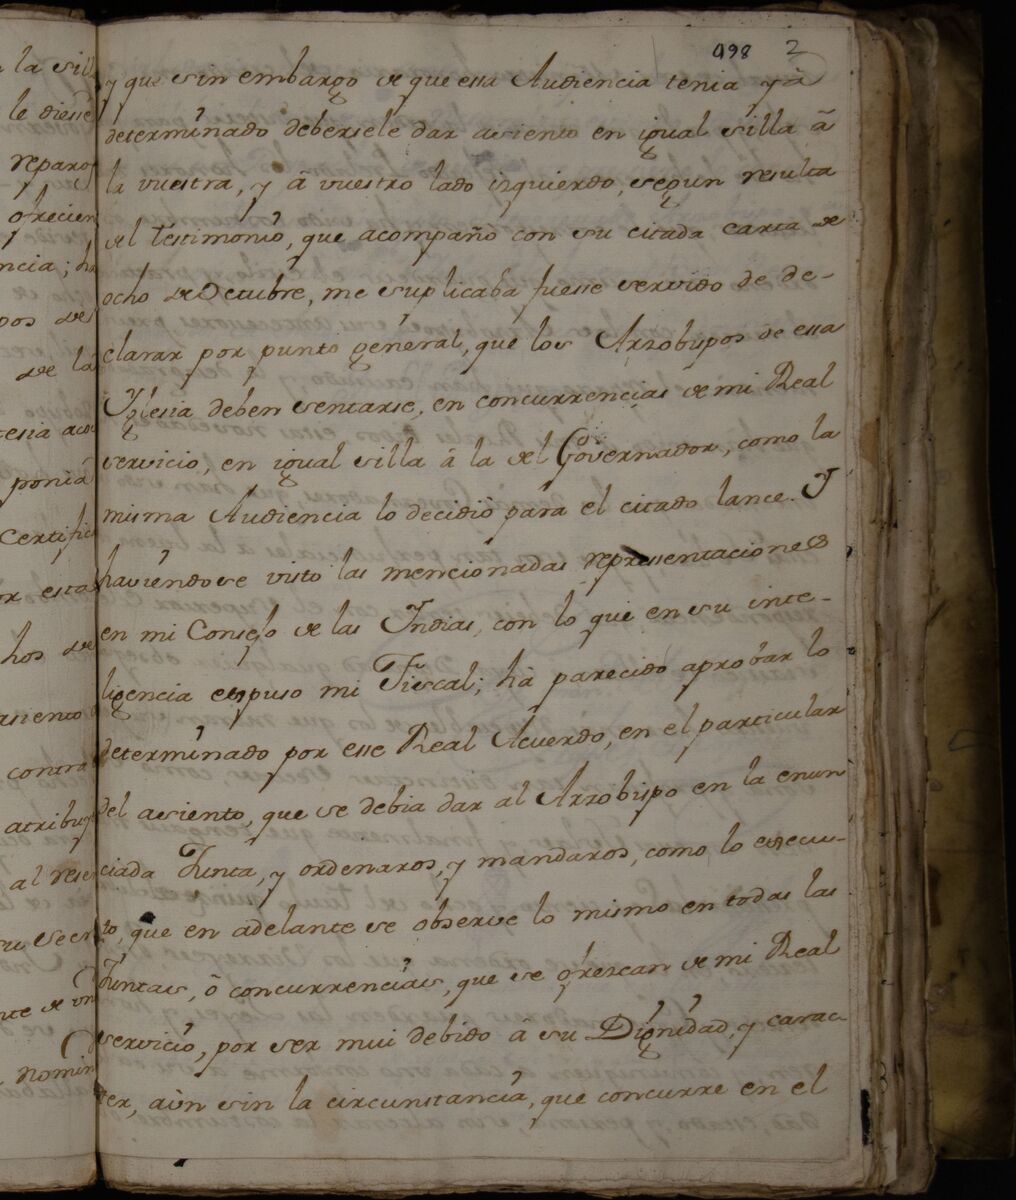 998 2
y que sin embargo de que essa Audiencia tenia yà
determinado debersele dar asiento en igual silla â
la vuestra, y â vuestro lado izquierdo, segun resulta
del testimonio, que acompañò con su citada carta de
ocho de Octubre, me suplicaba fuesse servido de de-
clarar por punto general, que los Arzobispos de essa
Yglesia deben sentarse, en concurrencias de mi Real
servicio, en igual silla â la del Governador, como la
misma Audiencia lo decidiò para el citado lance. Y
haviendose visto las mencionadas representaciones
en mi Consejo de las Indias, con lo que en su inte-
ligencia expuso mi Fiscal; hà parecido aprobar lo
determinado por esse Real Acuerdo, en el particular
del asiento, que se debia dar al Arzobispo en la enun
ciada Junta, y ordenaros, y mandaros, como lo execu-
to, que en adelante se observe lo mismo en todas las
Juntas, ô concurrencias, que se ofrezcan de mi Real
servicio, por ser mui debido â su Dignidad, y carac
ter, aùn sin la circunstancia, que concurre en el
la sill
le diesse
reparo
ofrecien
ncia; ha
pos de
de la
esia aco
ponia
Certific
or esta
hos de
asiento
contra
atribuy
al rese
su secre
nte de un
nomin